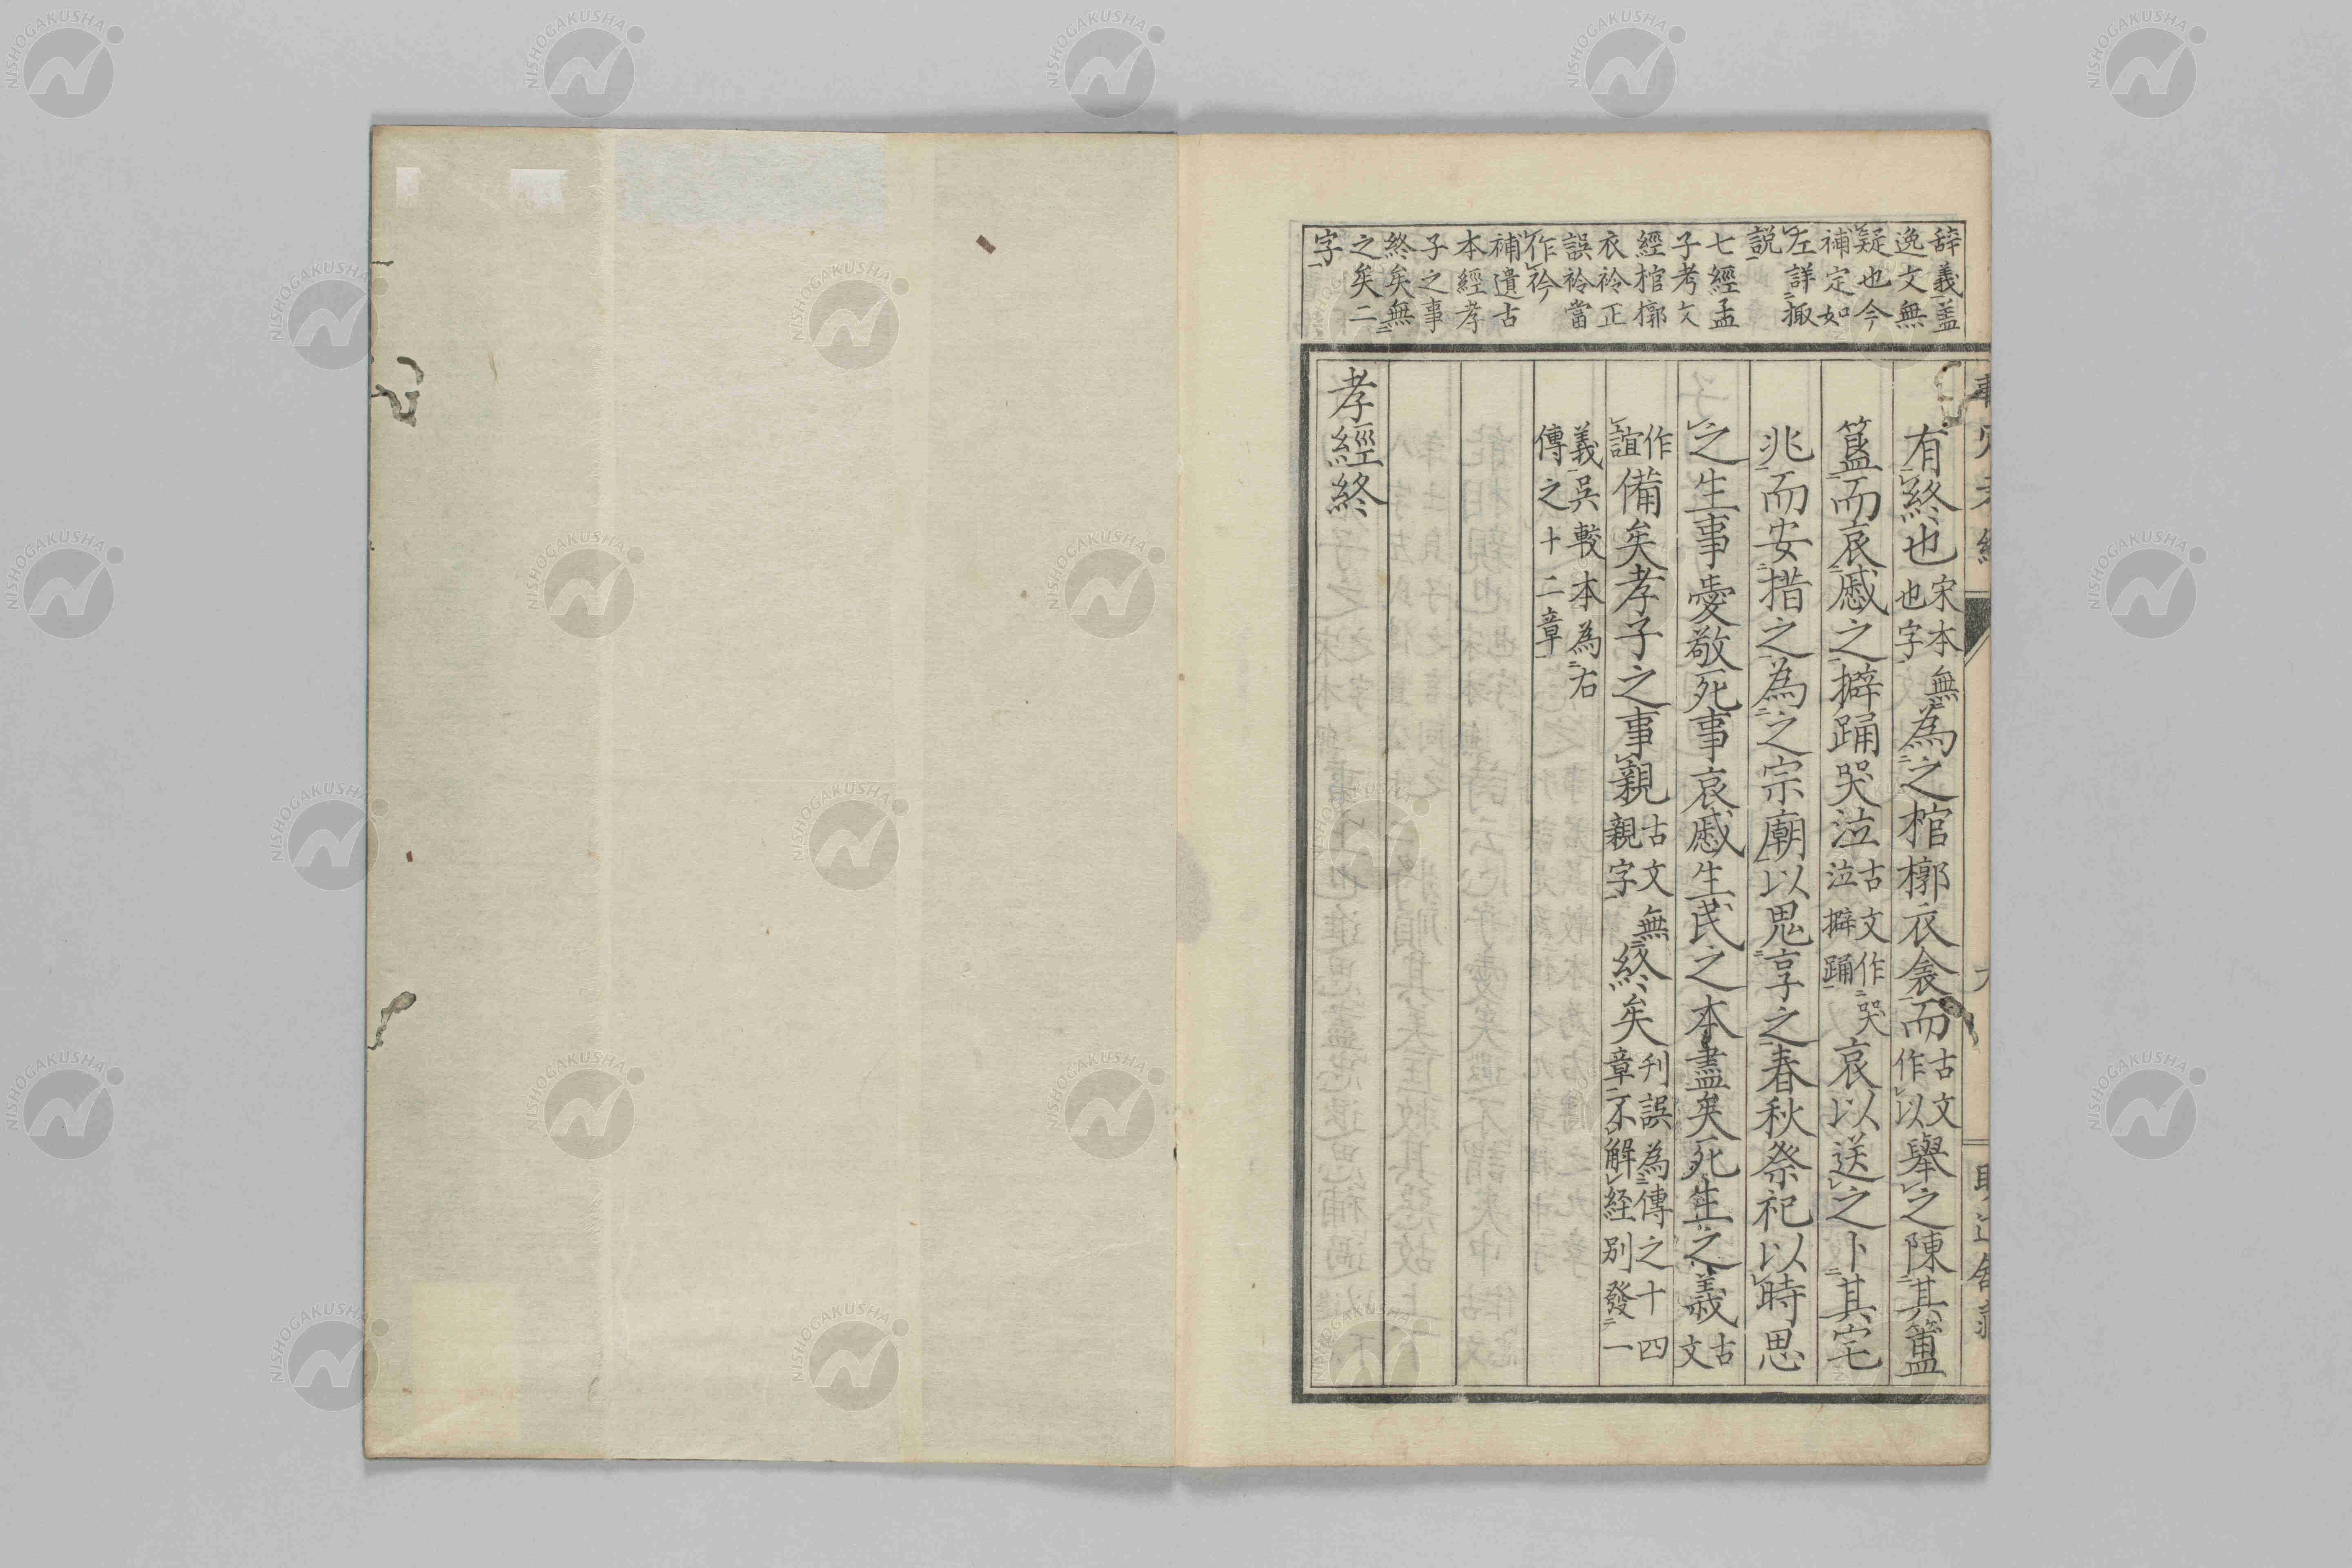 辞義蓋
逸文無
疑也今
補定如
左詳掫
説
七經孟
子考文
經棺槨
衣衿正
誤衿當
作衿
補遺古
本經孝
子之事
終矣無
之矣二
字
有終也宋本無也字為之棺槨衣衾而古文作以舉之陳其簠
簋而哀慼之擗踊哭泣古文作哭泣擗踊哀以送之卜其宅
兆而安措之為之宗廟以鬼享之春秋祭祀以時思
之生事愛敬死事哀慼生民之本盡矣死生之義古文
作誼備矣孝子之事親古文無親字終矣刊誤為傳之十四章不解経別發一
義吳較本為右傳之十二章
孝經終
NISHOGAKUSHA